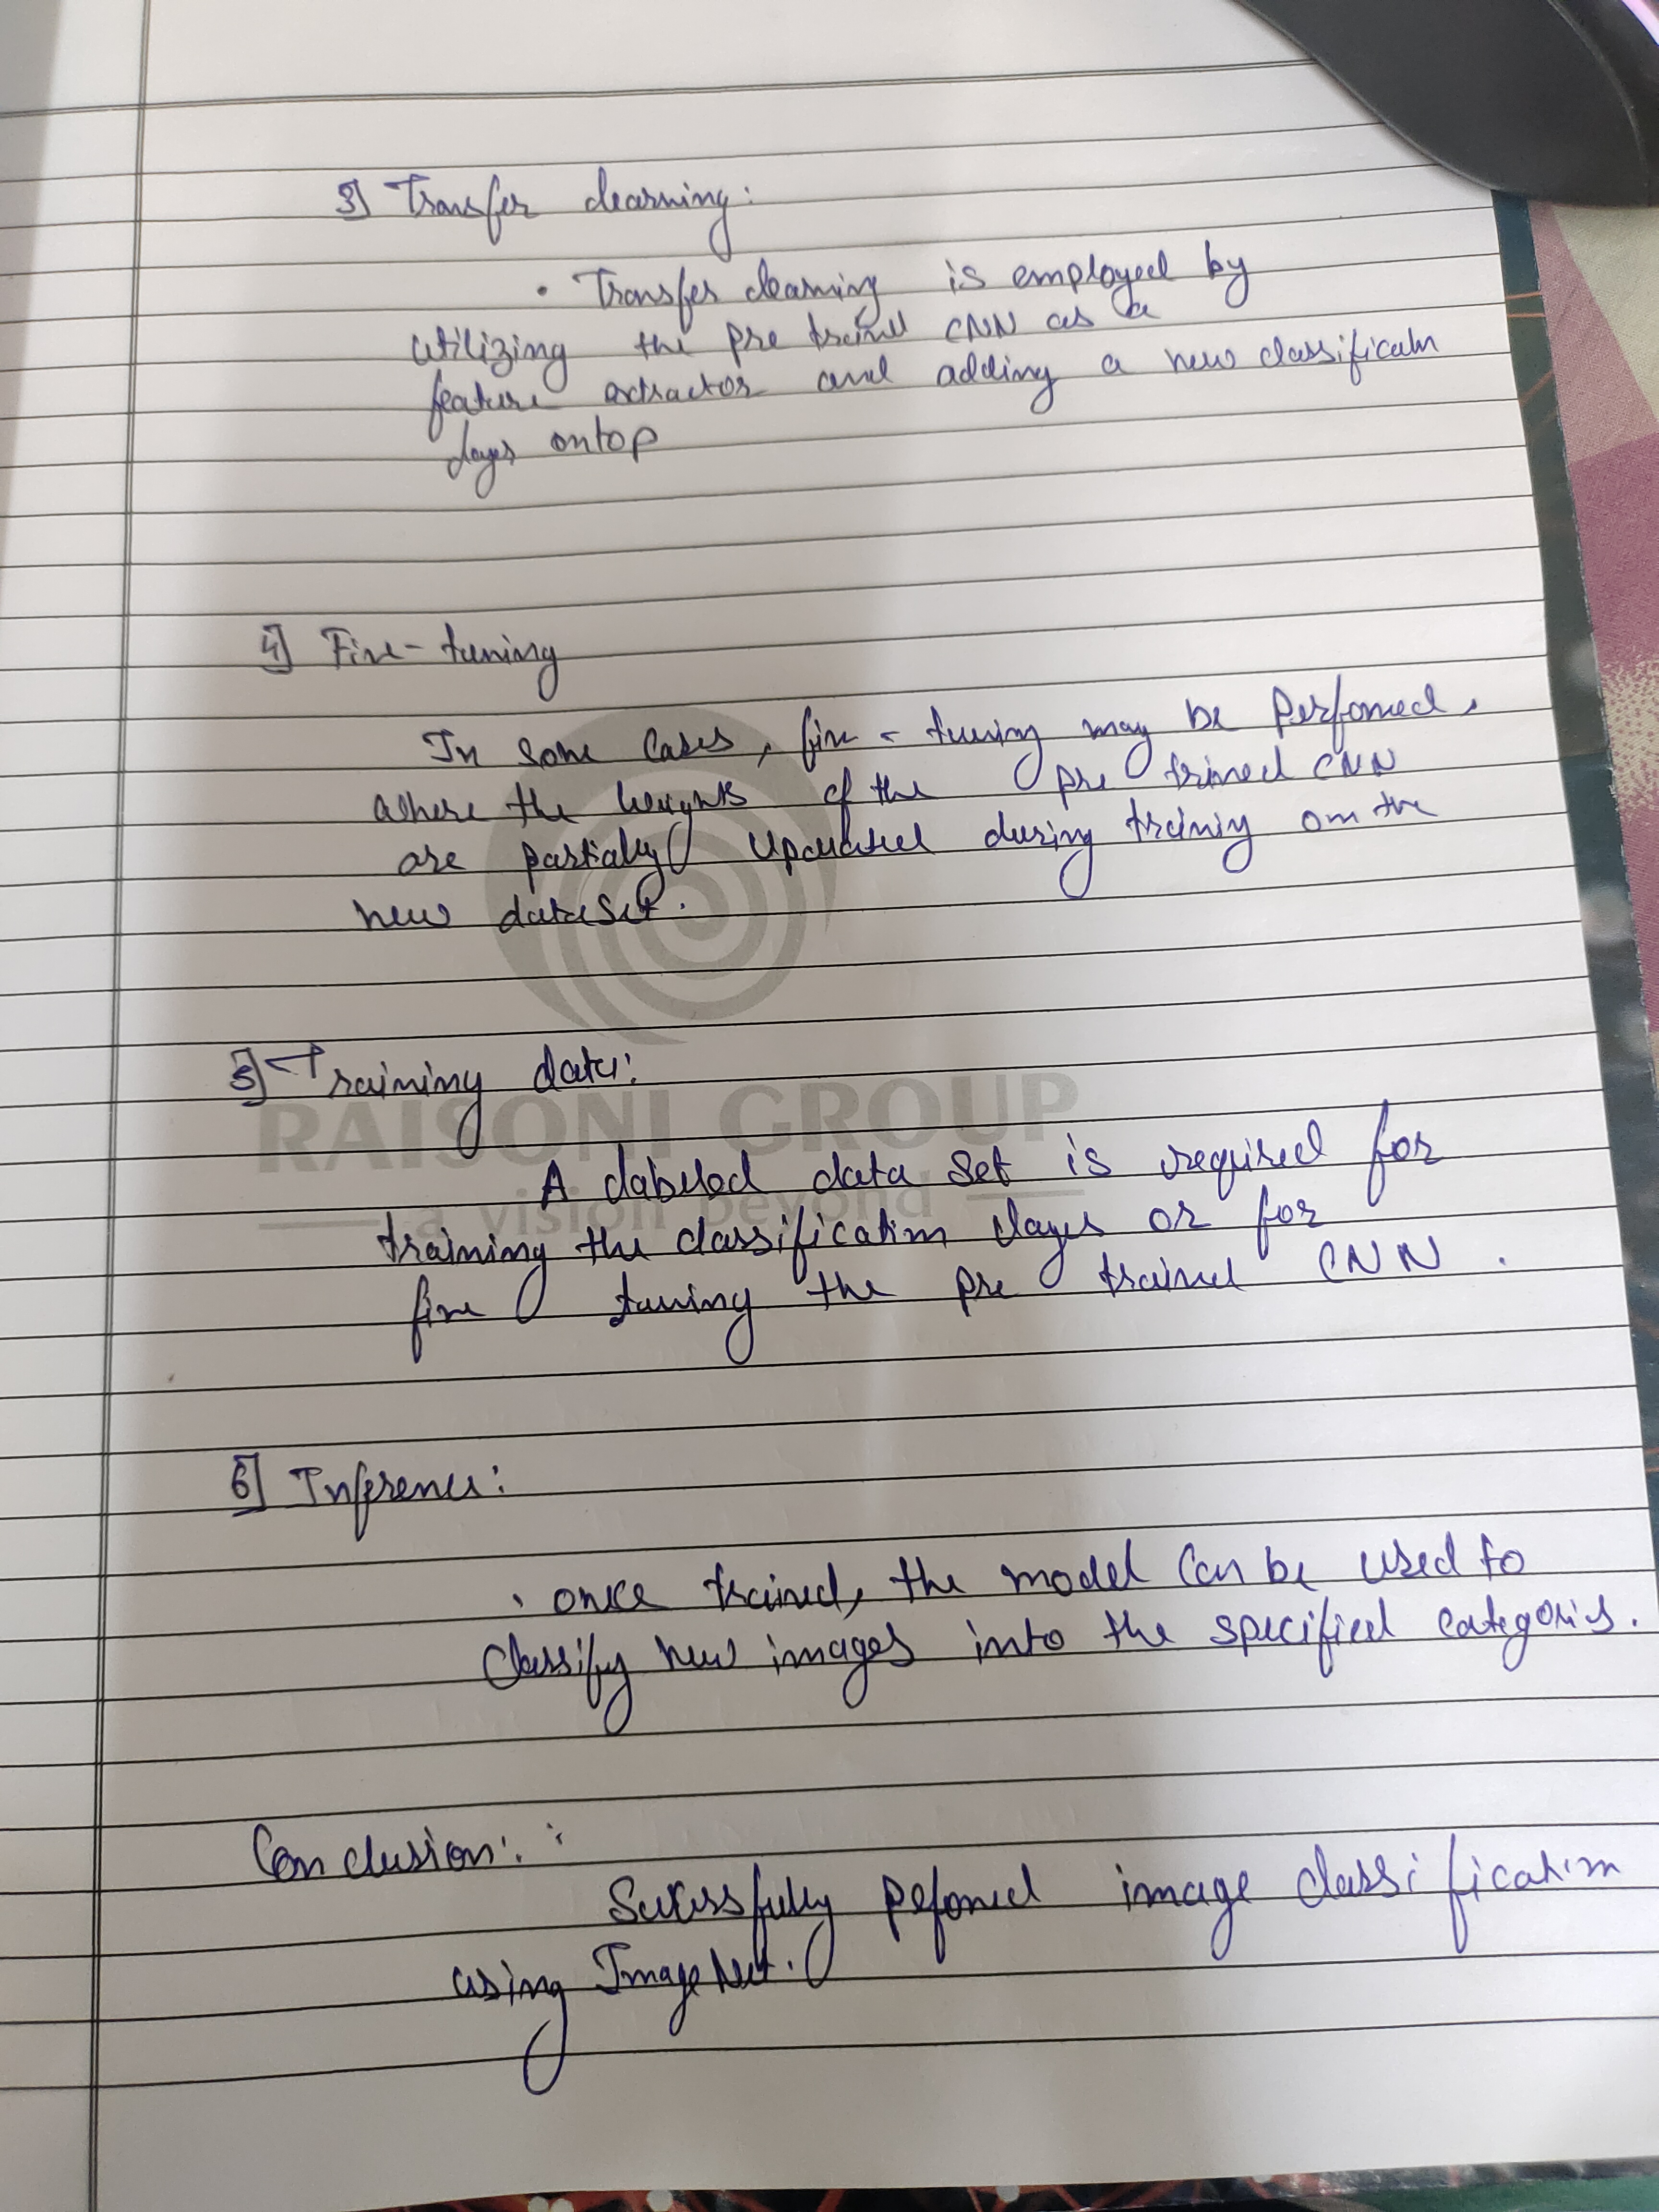 3] Transfer learning:
• Transfer learning is employed by
utilizing the pre traind CNN as a
feature extractor and adding a new classificatn
layer ontop
4] Fine-tuning
In some Cases, fine-tuning may be perfomed,
where the weights of the pre trained CNN
are partially updated during training on the
new dataset.
5] Training data:
RAISONI GROUP
a vision beyond
A labeled data set is required for
training the classification layer or for
fine tuning the pre trained CNN.
6] Inference:
• once trained, the model Can be used to
Classify new images into the specified categories.
Conclusion:
Sucessfully pefomed image classification
using ImageNet.